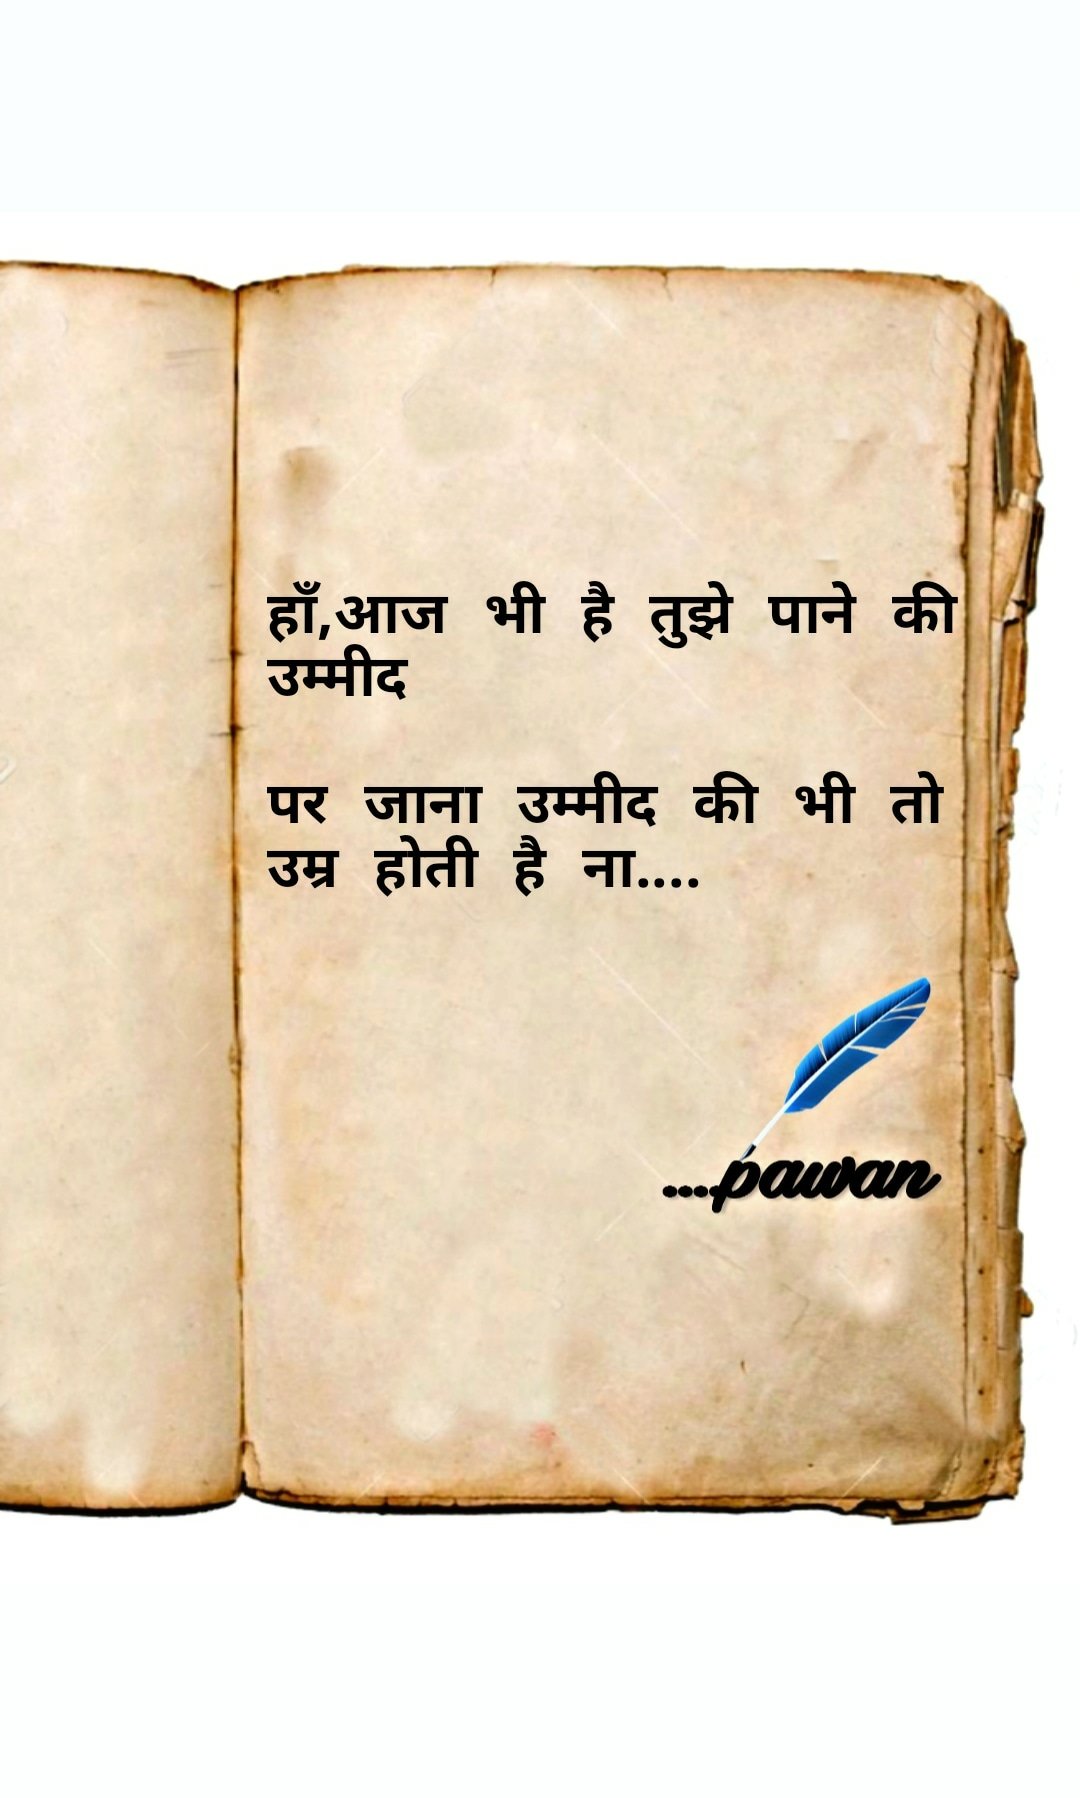 हाँ,आज भी है तुझे पाने की
उम्मीद
पर जाना उम्मीद की भी तो
उम्र होती है ना....
....pawan